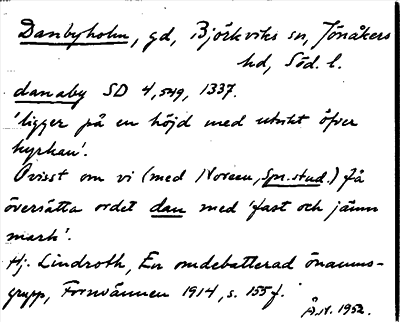 Danbyholm, gd, Björkviks sn, Jönåkers
hd, Söd. l.
danaby SD 4,549, 1337.
'ligger på en höjd med utsikt öfver
kyrkan'.
Ovisst om vi (med Noreen, Spr.stud.) få
översätta ordet dan med 'fast och jämn
mark'.
Hj. Lindroth, En omdebatterad önamns-
grupp, Fornvännen 1914, s. 155 f.
Å.st. 1952.